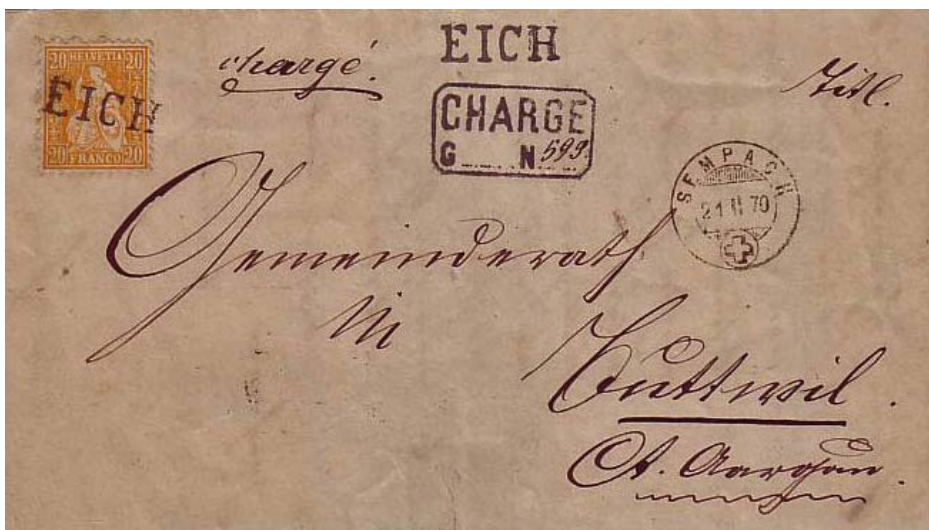 20 HELVETIA 20
EICH
20 FRANCO 20
chargé.
EICH
CHARGE
G N 599.
Titl.
SEMPACH
21 II 70
Gemeinderath
in
Buttwil.
Ct. Aargau.